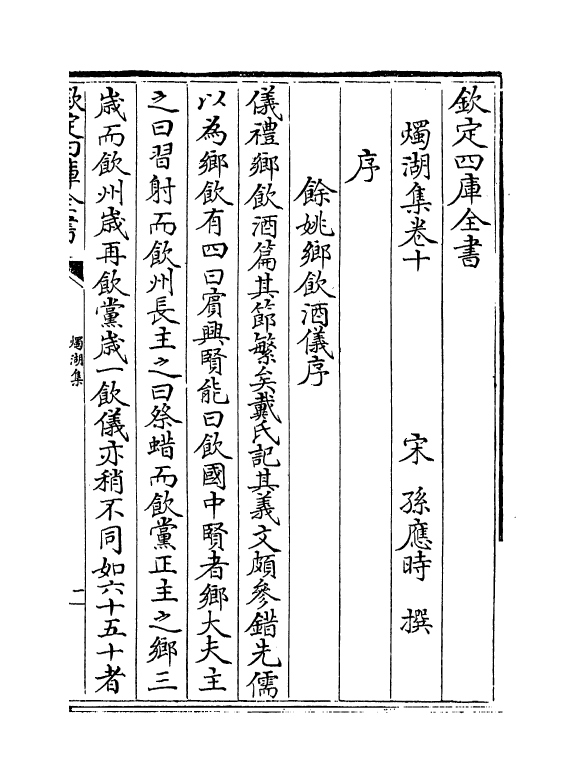 欽定四庫全書
燭湖集卷十
宋 孫應時 撰
序
餘姚鄉飲酒儀序
儀禮鄉飲酒篇其節繁矣戴氏記其義文頗參錯先儒
以為鄉飲有四曰賔興賢能曰飲國中賢者鄉大夫主
之曰習射而飲州長主之曰祭蜡而飲黨正主之鄉三
歳而飲州歳再飲黨歳一飲儀亦稍不同如六十五十者
欽定四庫全書
燭湖集
一